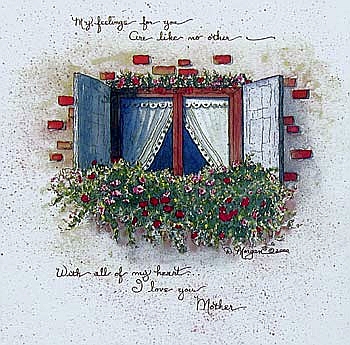 My feelings for you
Are like no other
D. Morgan © 2000
With all of my heart...
I love you
Mother